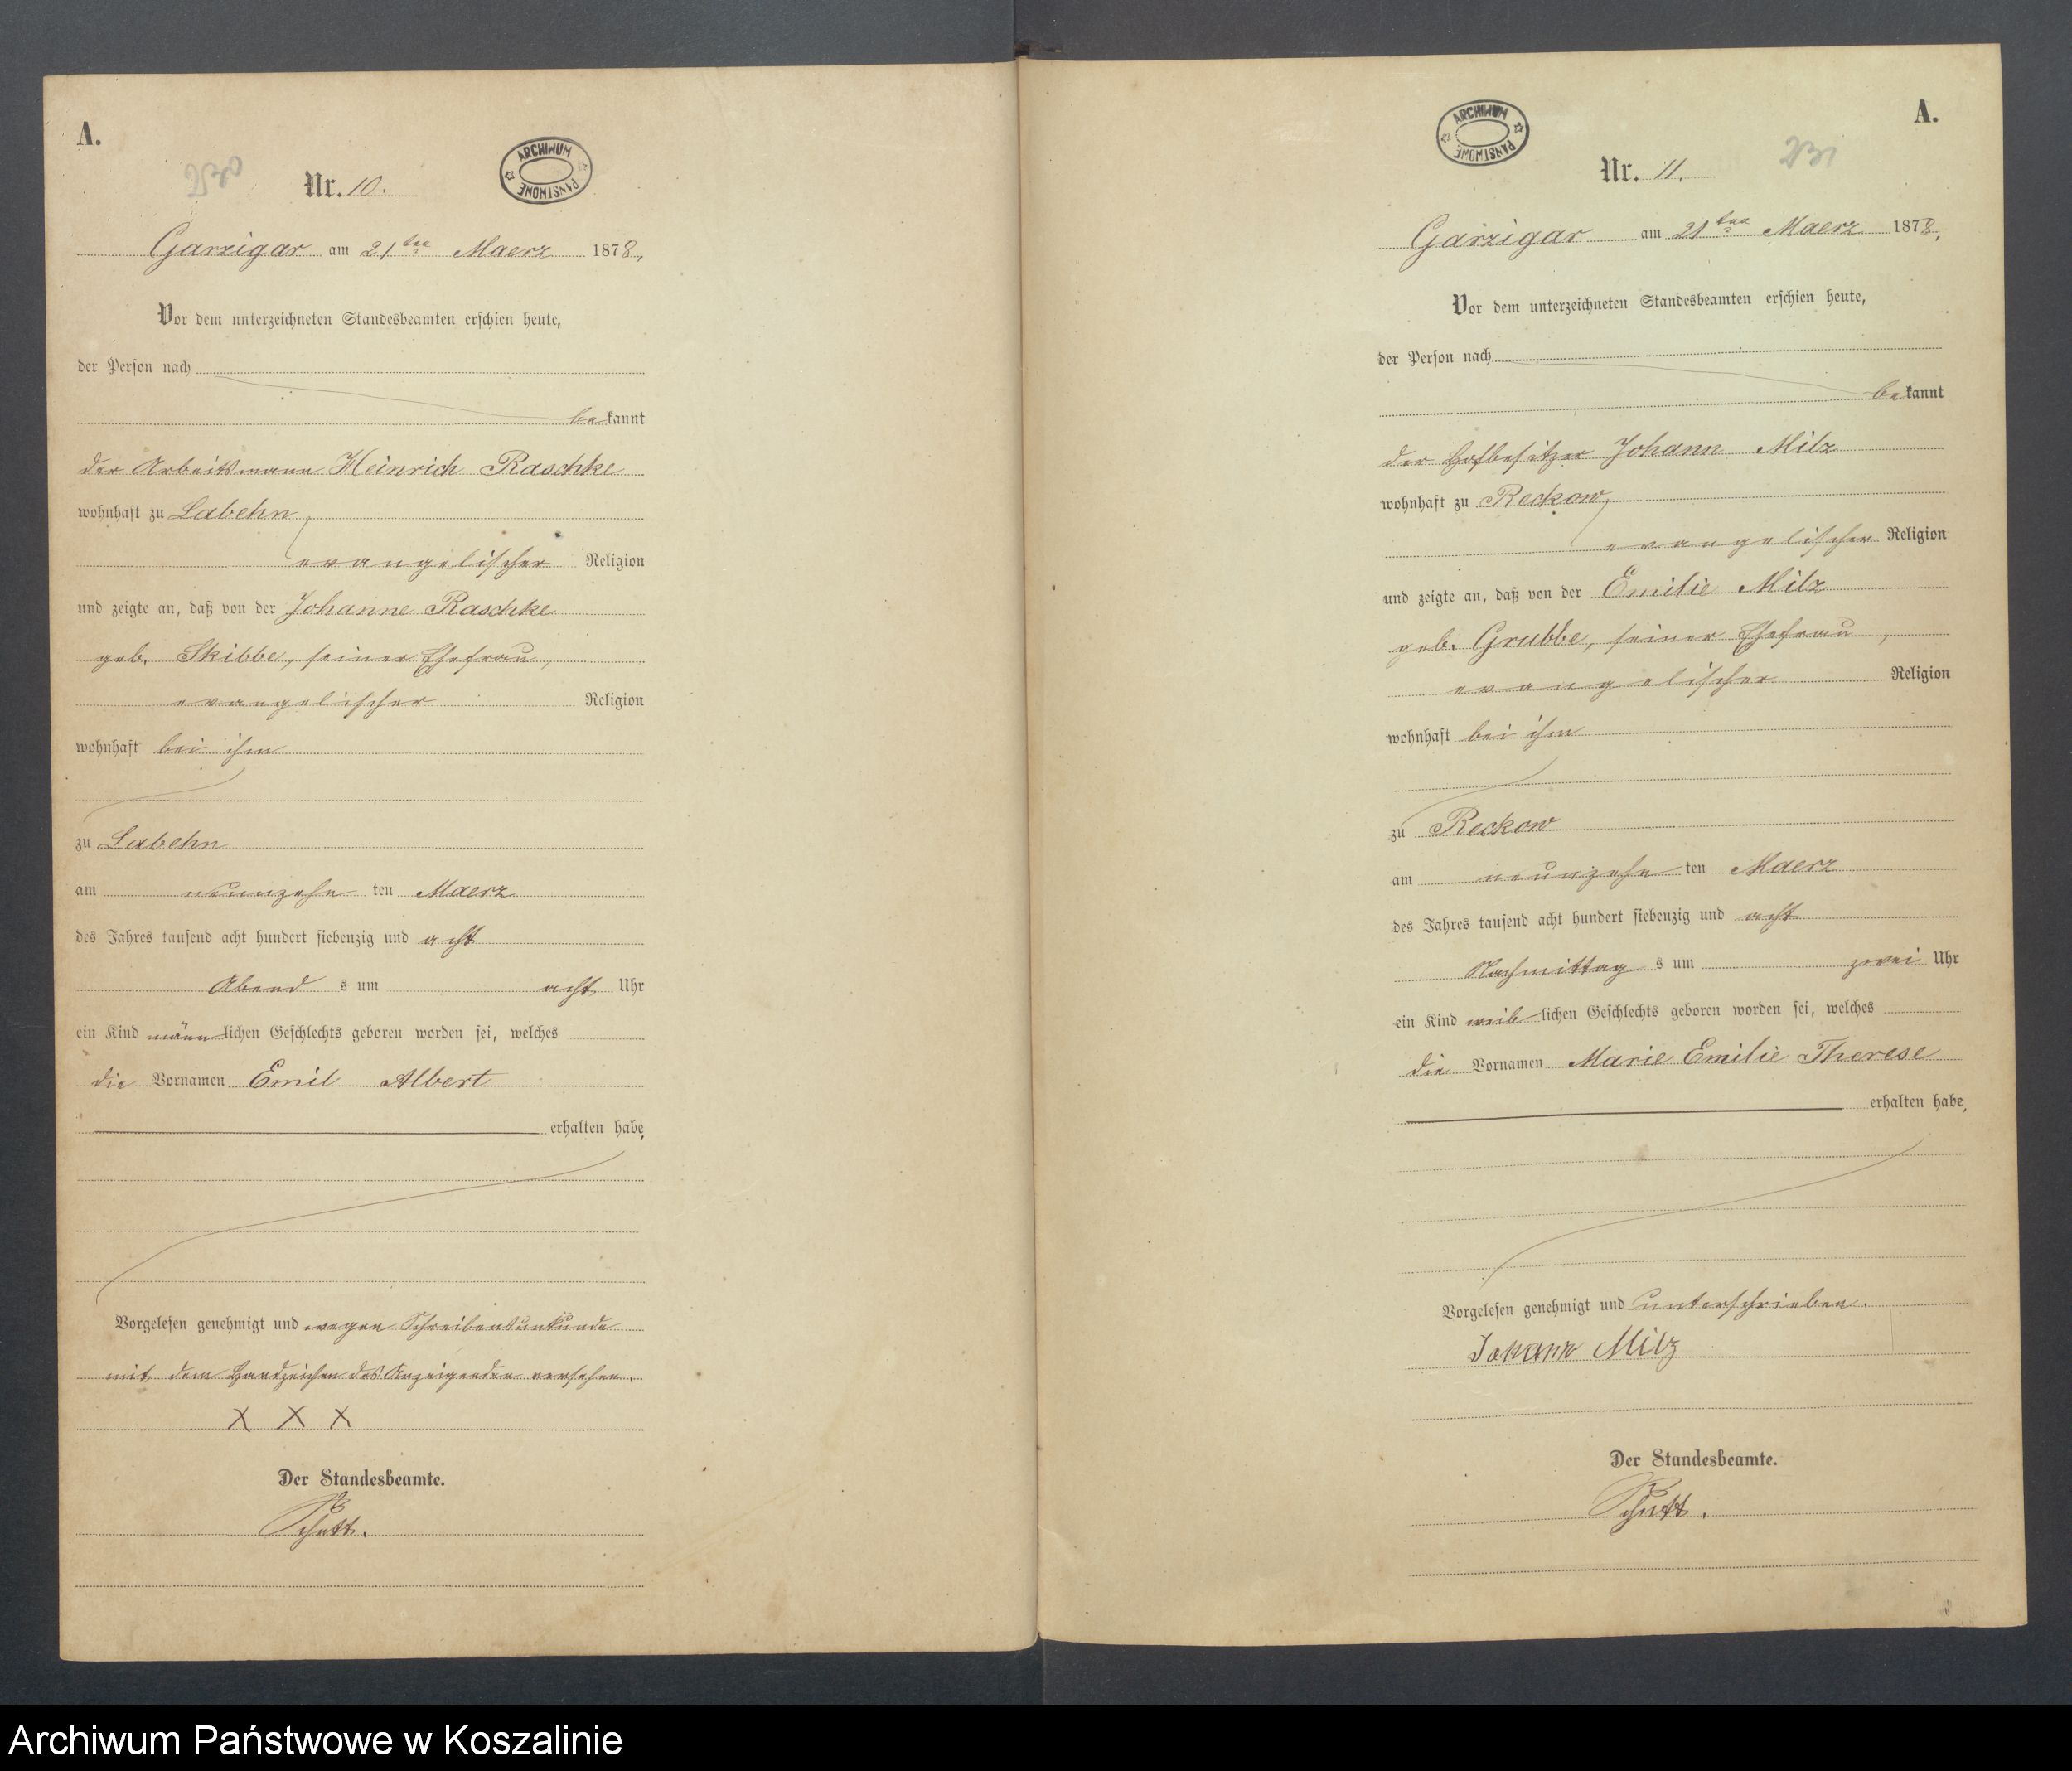 A.
230
Nr. 10.
ARCHIWUM PAŃSTWOWE
Garzigar am 21ten Maerz 1878,
Vor dem unterzeichneten Standesbeamten erschien heute,
der Person nach
bekannt
der Arbeitsmann Heinrich Raschke
wohnhaft zu Labehn,
evangelischer Religion
und zeigte an, daß von der Johanne Raschke
geb. Skibbe, seiner Ehefrau,
evangelischer Religion
wohnhaft bei ihm
zu Labehn
am neunzehn ten Maerz
des Jahres tausend acht hundert siebenzig und acht
Abend s um acht Uhr
ein Kind männlichen Geschlechts geboren worden sei, welches
die Vornamen Emil Albert
erhalten habe,
Vorgelesen genehmigt und wegen Schreibensunkunde
mit dem Handzeichen des Anzeigenden versehen.
X X X
Der Standesbeamte.
A.
231
ARCHIWUM PAŃSTWOWE
Nr. 11.
Garzigar am 21ten Maerz 1878,
Vor dem unterzeichneten Standesbeamten erschien heute,
der Person nach
bekannt
der Hofbesitzer Johann Milz
wohnhaft zu Reckow,
evangelischer Religion
und zeigte an, daß von der Emilie Milz
geb. Grubbe, seiner Ehefrau,
evangelischer Religion
wohnhaft bei ihm
zu Reckow
am neunzehn ten Maerz
des Jahres tausend acht hundert siebenzig und acht
Nachmittag s um zwei Uhr
ein Kind weiblichen Geschlechts geboren worden sei, welches
die Vornamen Marie Emilie Therese
erhalten habe,
Vorgelesen genehmigt und unterschrieben.
Johann Milz
Der Standesbeamte.
Archiwum Państwowe w Koszalinie